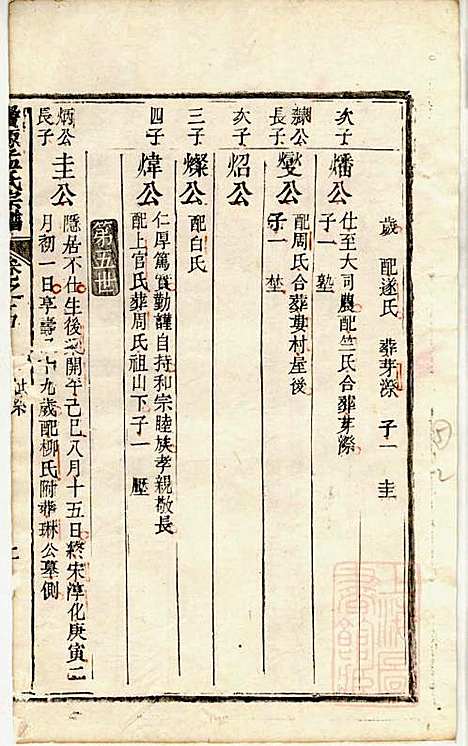 歲 配遂氏 葬芽漈 子一 圭
次子 燔公 仕至大司農配竺氏合葬芽漈
子一 塾
隸公長子 燮公 配周氏合葬蕢村屋後
子一 埜
次子 炤公
三子 燦公 配白氏
四子 煒公 仁厚篤實勤謹自持和宗睦族孝親敬長
配上官氏葬周氏祖山下子一 壓
第五世
炳公長子 圭公 隱居不仕生後梁開平己巳八月十五日終宋淳化庚寅二
月初一日享壽 十九歲配柳氏附葬琳公墓側
氏宗譜
世系
5
2